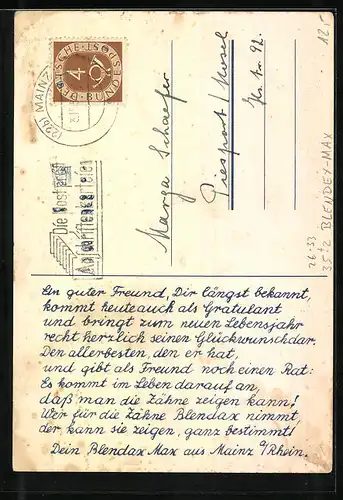 (22b) MAINZ
DEUTSCHE BUNDESPOST
4
Die Post
Marga Schaefer
Piesport/Mosel
Hs. Nr. 92.
12.-
26-53
35+2 BLENDEX-MAX
Ein guter Freund, Dir längst bekannt,
kommt heute auch als Gratulant
und bringt zum neuen Lebensjahr
recht herzlich seinen Glückwunsch dar.
Den allerbesten, den er hat,
und gibt als Freund noch einen Rat:
Es kommt im Leben darauf an,
daß man die Zähne zeigen kann!
Wer für die Zähne Blendax nimmt,
der kann sie zeigen, ganz bestimmt!
Dein Blendax Max aus Mainz a/Rhein.